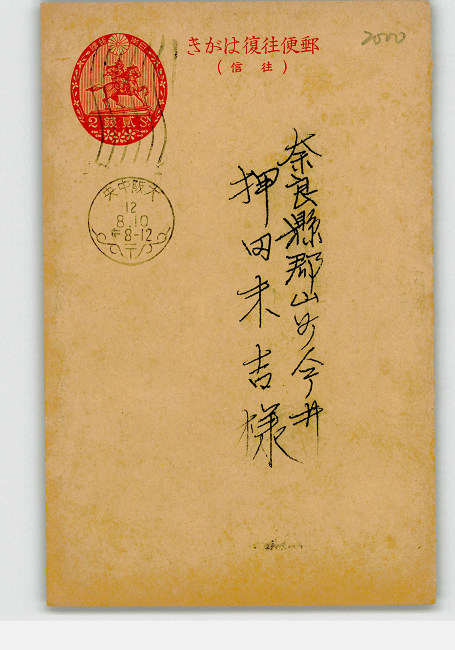 郵便往復はがき
(往信)
2000
2 銭貳 S
大阪中央
12
8.10
后 8-12
奈良縣郡山町今井
押田末吉様